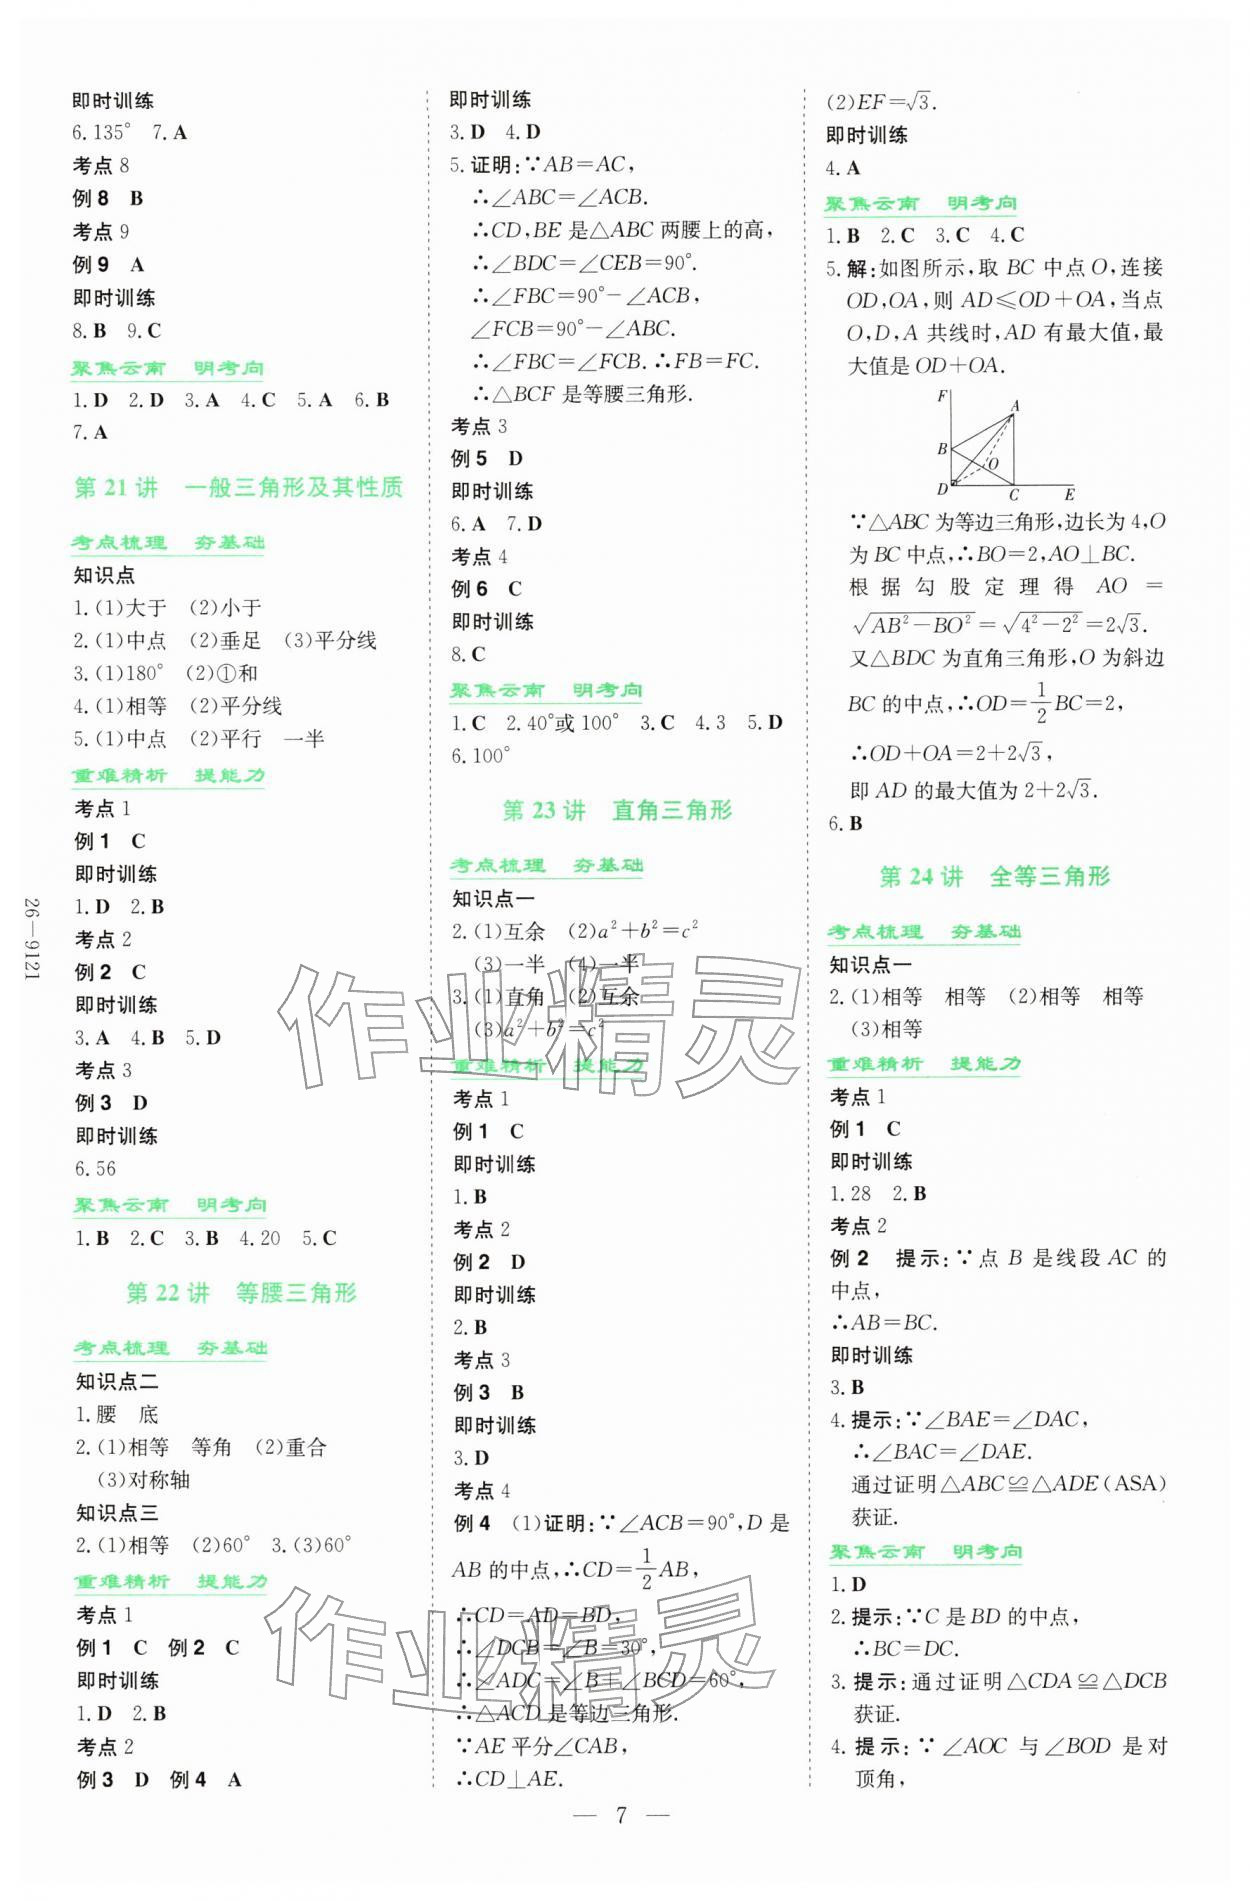 即时训练
6.135°  7.A
考点 8
例8  B
考点 9
例9  A
即时训练
8.B  9.C
聚焦云南  明考向
1.D  2.D  3.A  4.C  5.A  6.B
7.A
第 21 讲  一般三角形及其性质
考点梳理  夯基础
知识点
1.(1)大于  (2)小于
2.(1)中点  (2)垂足  (3)平分线
3.(1)180°  (2)①和
4.(1)相等  (2)平分线
5.(1)中点  (2)平行  一半
重难精析  提能力
考点 1
例1  C
即时训练
1.D  2.B
考点 2
例2  C
即时训练
3.A  4.B  5.D
考点 3
例3  D
即时训练
6.56
聚焦云南  明考向
1.B  2.C  3.B  4.20  5.C
第 22 讲  等腰三角形
考点梳理  夯基础
知识点二
1.腰  底
2.(1)相等  等角  (2)重合
(3)对称轴
知识点三
2.(1)相等  (2)60°  3.(3)60°
重难精析  提能力
考点 1
例1  C  例2  C
即时训练
1.D  2.B
考点 2
例3  D  例4  A
即时训练
3.D  4.D
5.证明:∵AB=AC,
∴∠ABC=∠ACB.
∴CD,BE 是△ABC 两腰上的高,
∴∠BDC=∠CEB=90°.
∴∠FBC=90°-∠ACB,
∠FCB=90°-∠ABC.
∴∠FBC=∠FCB.∴FB=FC.
∴△BCF 是等腰三角形.
考点 3
例5  D
即时训练
6.A  7.D
考点 4
例6  C
即时训练
8.C
聚焦云南  明考向
1.C  2.40°或 100°  3.C  4.3  5.D
6.100°
第 23 讲  直角三角形
考点梳理  夯基础
知识点一
2.(1)互余  (2)a²+b²=c²
(3)一半  (4)一半
3.(1)直角  (2)互余
(3)a²+b²=c²
重难精析  提能力
考点 1
例1  C
即时训练
1.B
考点 2
例2  D
即时训练
2.B
考点 3
例3  B
即时训练
3.D
考点 4
例4  (1)证明:∵∠ACB=90°,D 是
AB 的中点,∴CD=1/2AB,
∴CD=AD=BD,
∴∠DCB=∠B=30°,
∴∠ADC=∠B+∠BCD=60°,
∴△ACD 是等边三角形.
∵AE 平分∠CAB,
∴CD⊥AE.
(2)EF=√3.
即时训练
4.A
聚焦云南  明考向
1.B  2.C  3.C  4.C
5.解:如图所示,取 BC 中点 O,连接
OD,OA,则 AD≤OD+OA,当点
O,D,A 共线时,AD 有最大值,最
大值是 OD+OA.
F
A
B
O
D
C
E
∵△ABC 为等边三角形,边长为 4,O
为 BC 中点,∴BO=2,AO⊥BC.
根据勾股定理得 AO=
√(AB²-BO²)=√(4²-2²)=2√3.
又△BDC 为直角三角形,O 为斜边
BC 的中点,∴OD=1/2BC=2,
∴OD+OA=2+2√3,
即 AD 的最大值为 2+2√3.
6.B
第 24 讲  全等三角形
考点梳理  夯基础
知识点一
2.(1)相等  相等  (2)相等  相等
(3)相等
重难精析  提能力
考点 1
例1  C
即时训练
1.28  2.B
考点 2
例2  提示:∵点 B 是线段 AC 的
中点,
∴AB=BC.
即时训练
3.B
4.提示:∵∠BAE=∠DAC,
∴∠BAC=∠DAE.
通过证明△ABC≌△ADE(ASA)
获证.
聚焦云南  明考向
1.D
2.提示:∵C 是 BD 的中点,
∴BC=DC.
3.提示:通过证明△CDA≌△DCB
获证.
4.提示:∵∠AOC 与∠BOD 是对
顶角,
26—9121
— 7 —
作业精灵
作业精灵